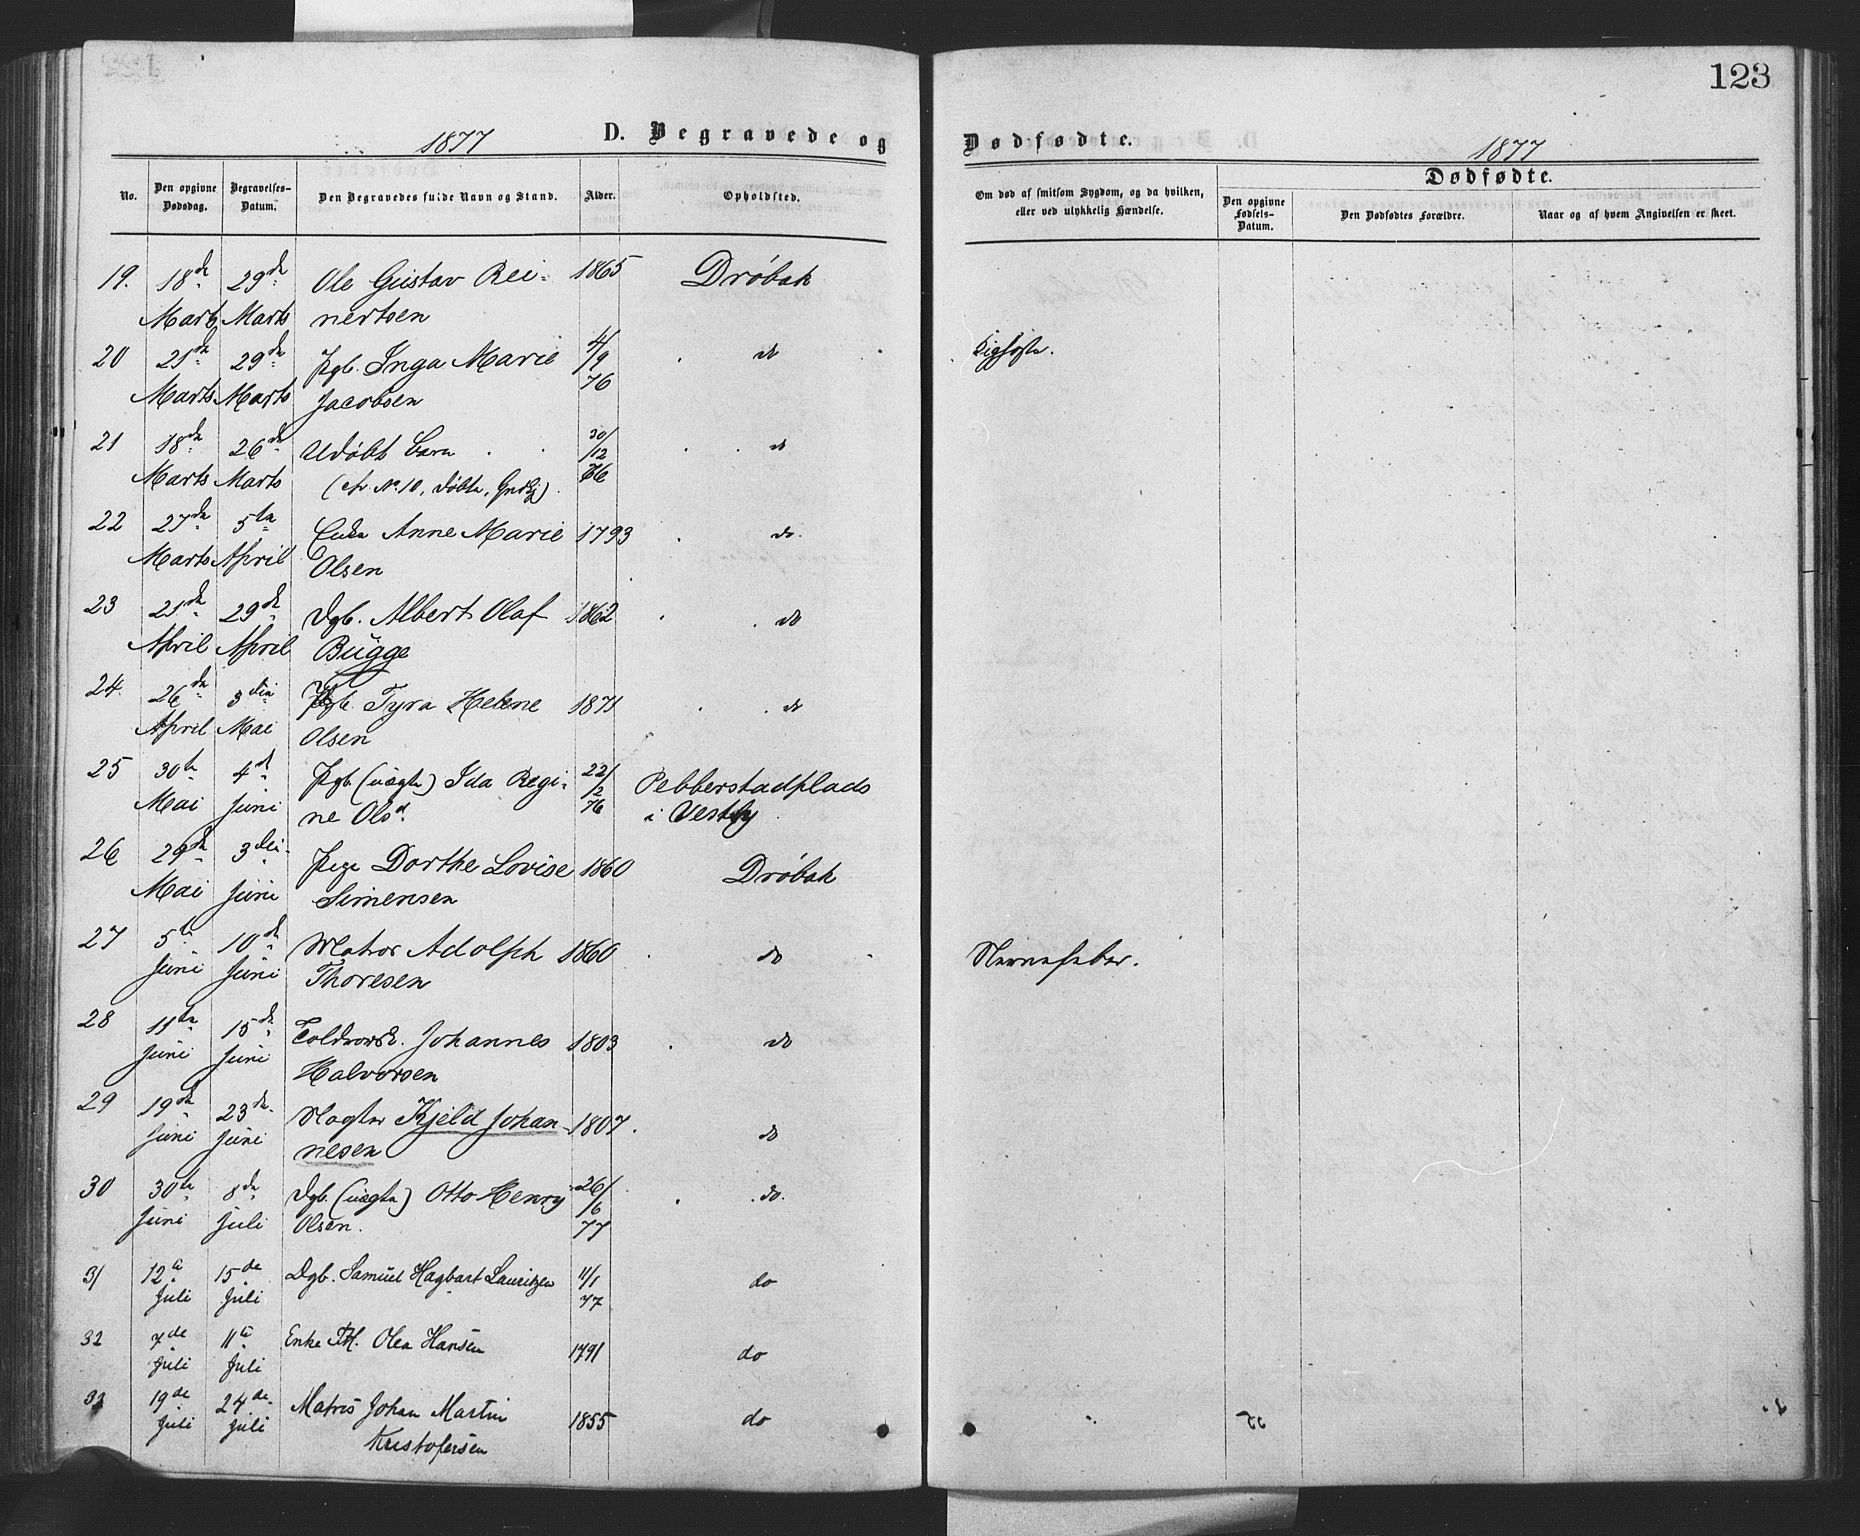 123
1877 D. Begravede og Dødfødte. 1877
Dødfødte.
No. Den opgivne Dødsdag. Begravelses-Datum. Den Begravedes fulde Navn og Stand. Alder. Opholdsted. Om død af smitsom Sygdom, og da hvilken, eller ved ulykkelig Hændelse. Den opgivne Fødsels-Datum. Den Dødfødtes Forældre. Naar og af hvem Angivelsen er skeet.
19. 18de 29de Ole Gustav Rei- 1865 Drøbak
Marts Marts nertsen
20 21de 29de Pgb. Inga Marie 4/9 76 do Kighoste.
Marts Marts Jacobsen
21 18de 26de Udøbt Barn 30/12 76 do
Marts Marts (cfr No 10, døbte,
22 27de 5te Enke Anne Marie 1793 do.
Marts April Olsen
23 21de 29de Dgb. Albert Olaf 1862 do
April April Bugge
24. 26de 3die Pgb. Tyra Helene 1871 do
April Mai Olsen
25 30te 4de Pgb (uægte) Ida Regi- 22/2 76 Pebberstadplads
Mai Juni ne Olsd. i Vestby
26 29de 3die Pige Dorthe Lovise 1860 Drøbak
Mai Juni Simensen
27 5te 10de Matros Adolph 1860 do Nervefeber.
Juni Juni Thoresen
28 11te 15de Toldrorsk. Johannes 1803 do
Juni Juni Halvorsen
29 19de 23de Slagter Kjeld Johan- 1807 do
Juni Juni nesen
30 30te 8de Dgb. (uægte) Otto Henry 26/6 77 do.
Juni Juli Olsen.
31 12te 15de Dgb. Samuel Hagbart Lauritzen 11/1 77 do
Juli Juli
32 7de 11te Enke Th. Olea Hansen 1791 do
Juli Juli
33 19de 24de Matros Johan Martin 1855 do
Juli Juli Kristofersen